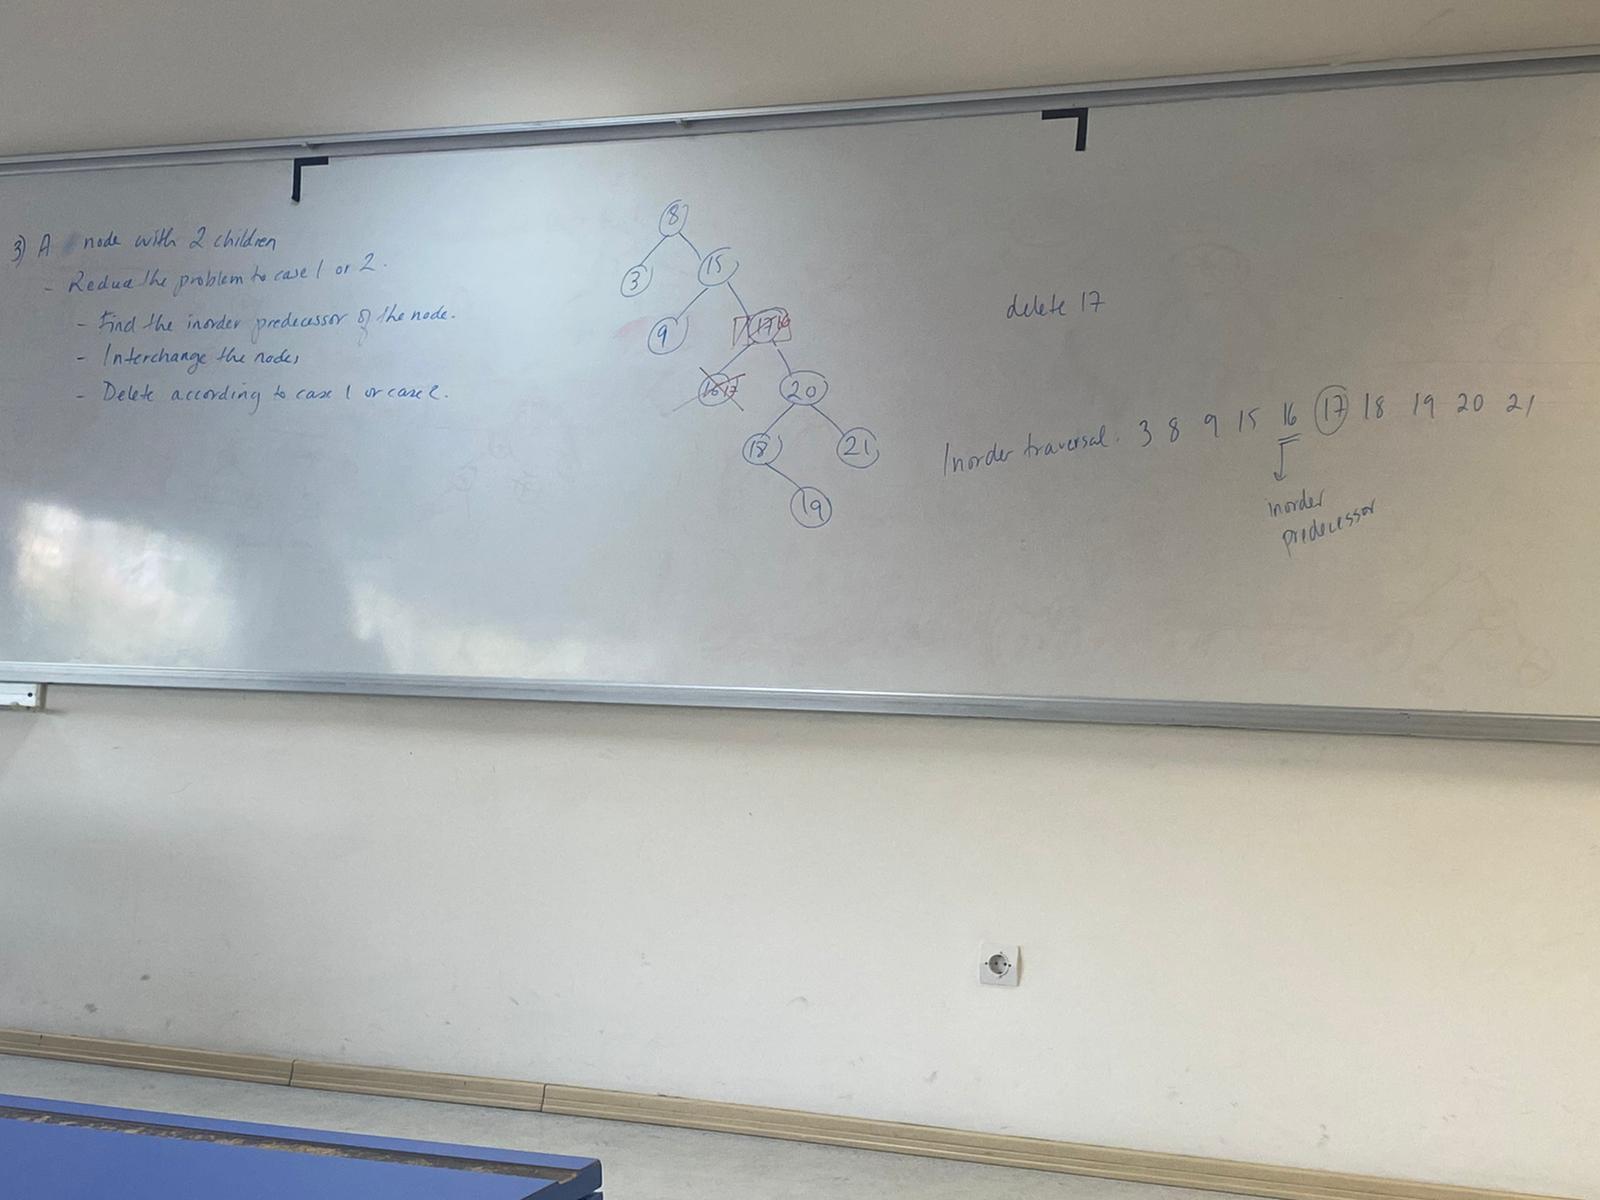 3) A node with 2 children
- Reduce the problem to case 1 or 2.
- Find the inorder predecessor of the node.
- Interchange the nodes
- Delete according to case 1 or case 2.
8
3 15
9 17 16
16 17 20
18 21
19
delete 17
Inorder traversal. 3 8 9 15 16 17 18 19 20 21
inorder
predecessor